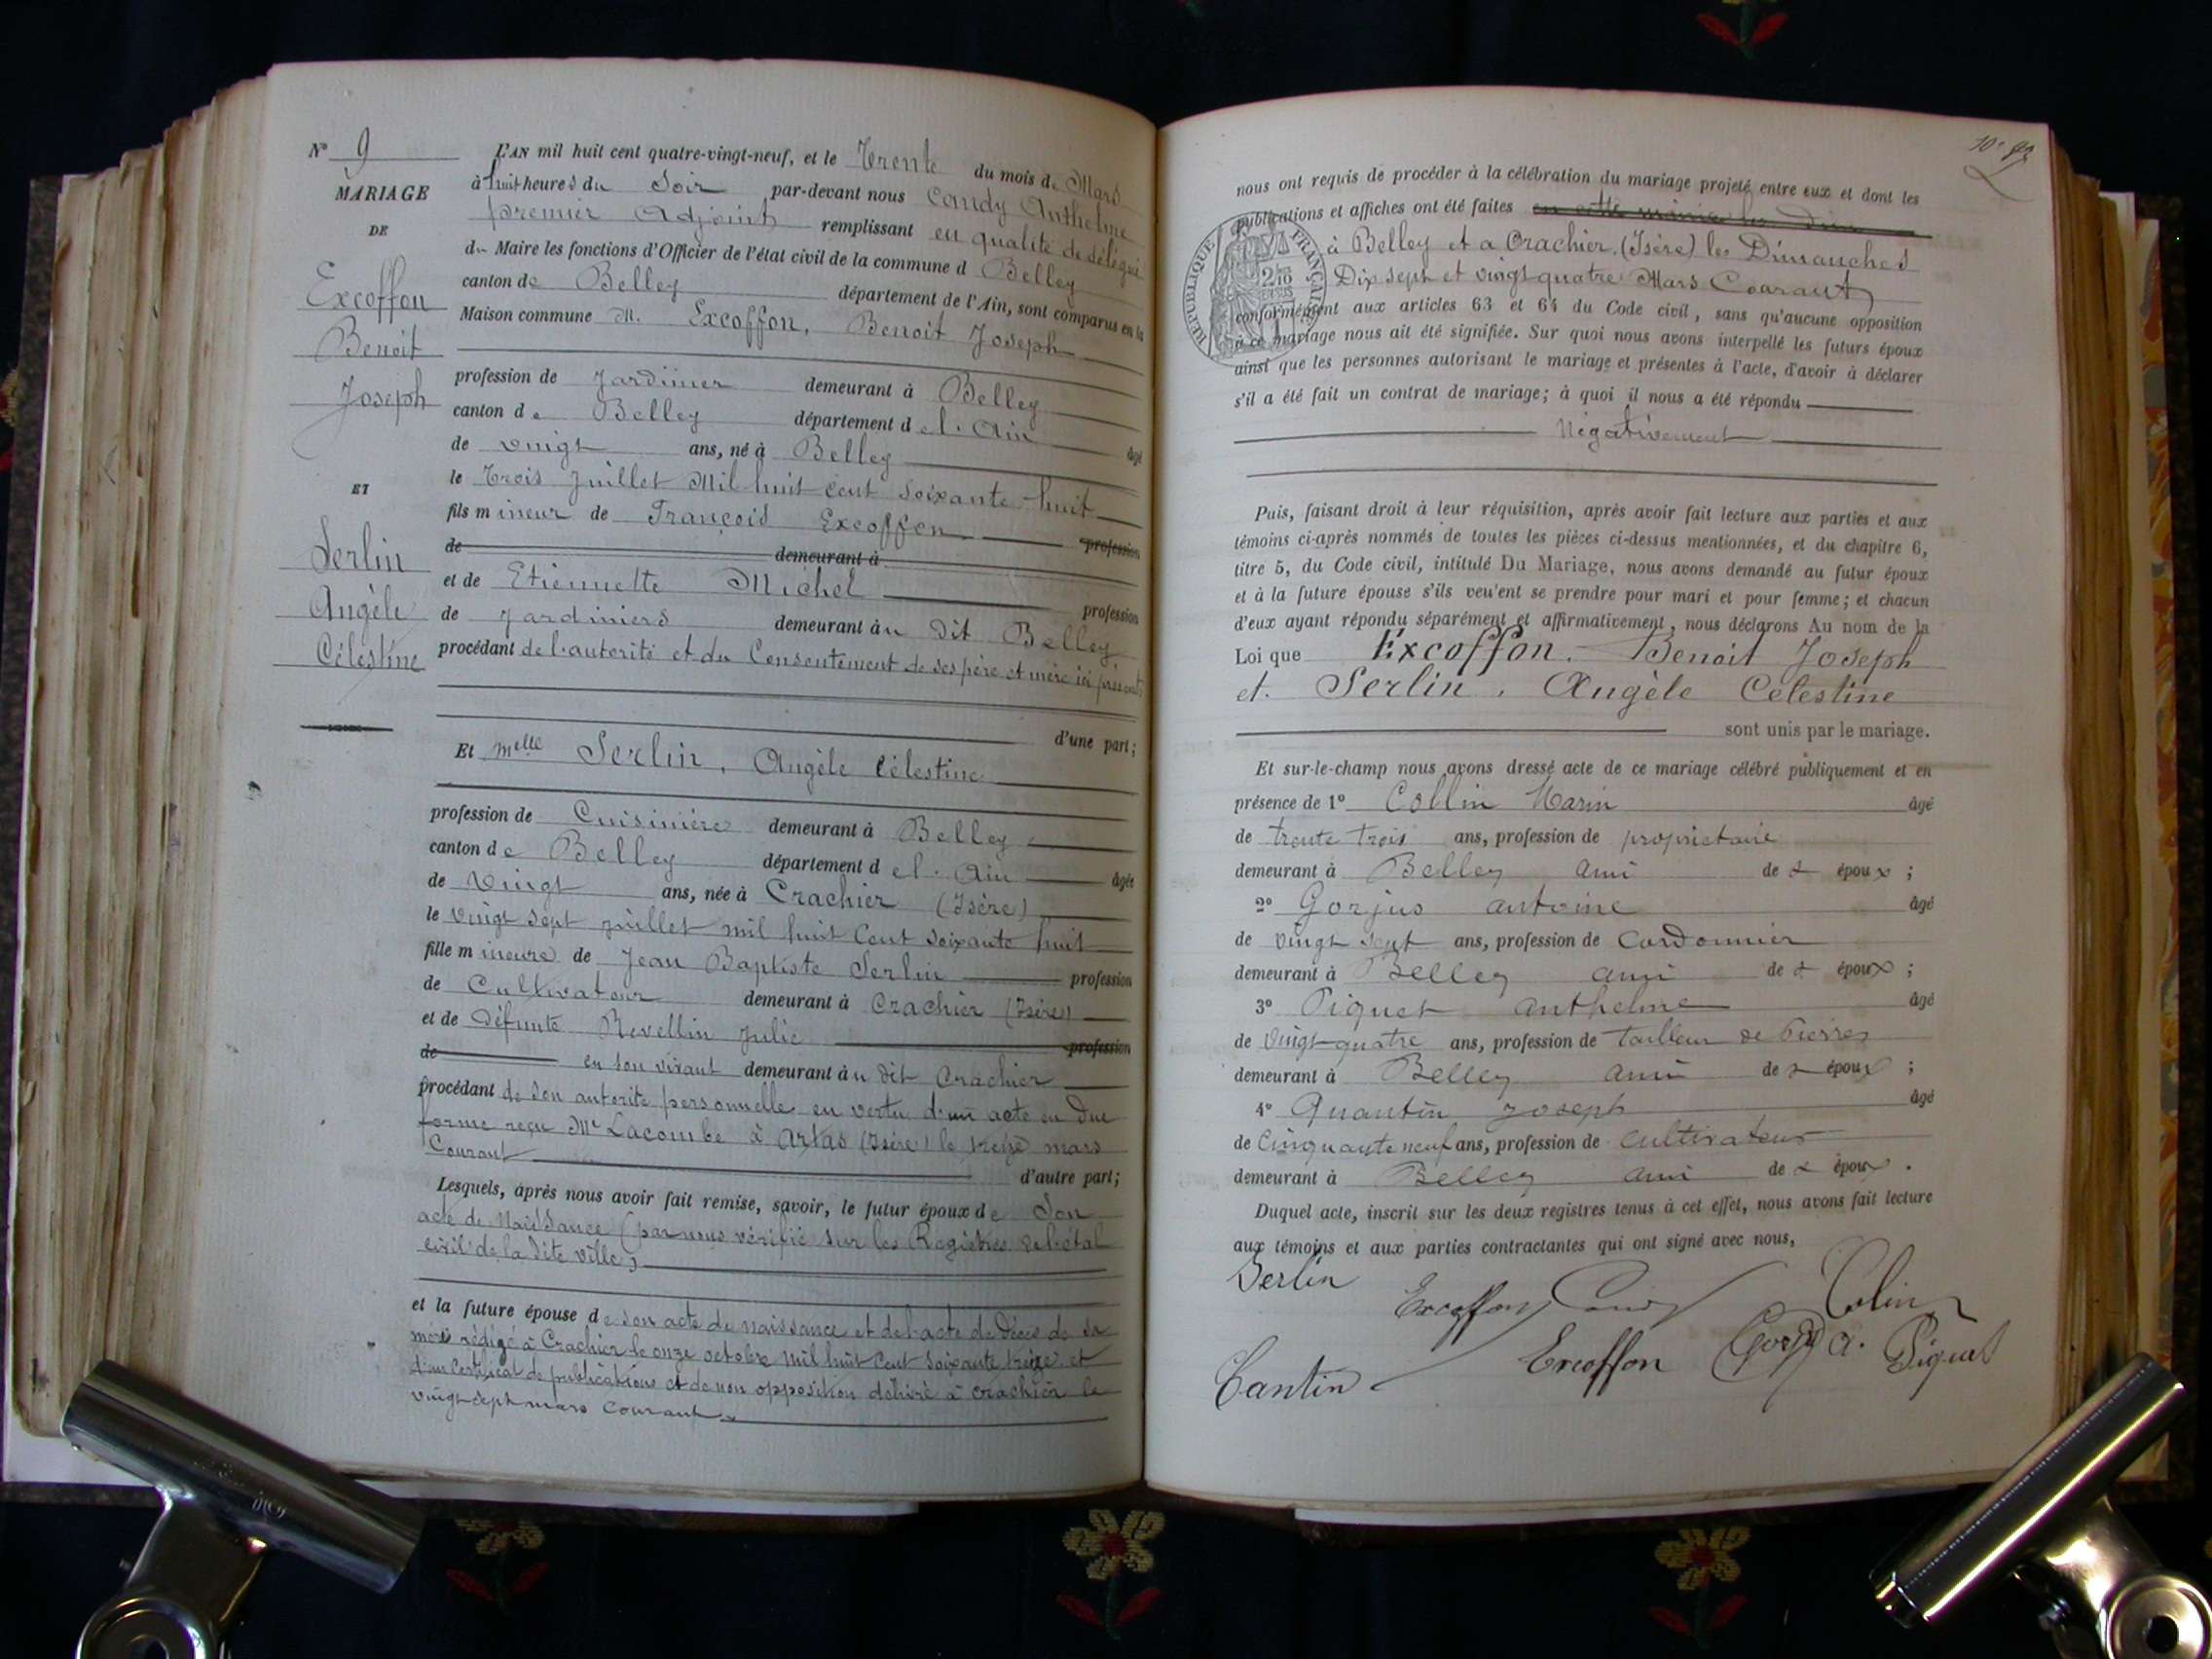 N° 9
MARIAGE
DE
Excoffon
Benoit
Joseph
ET
Serlin
Angèle
Célestine
L'AN mil huit cent quatre-vingt-neuf, et le Trente du mois de Mars
à huit heures du Soir par-devant nous Candy Anthelme
premier Adjoint remplissant en qualité de délégué
du Maire les fonctions d'Officier de l'état civil de la commune d Belley
canton de Belley département de l'Ain, sont comparus en la
Maison commune M. Excoffon, Benoit Joseph
profession de Jardinier demeurant à Belley
canton de Belley département de l'Ain âgé
de vingt ans, né à Belley
le Trois Juillet Mil huit cent soixante-huit
fils mineur de François Excoffon profession
de demeurant à
et de Etiennette Michel profession
de Jardiniers demeurant àu dit Belley
procédant de l'autorité et du Consentement de ses père et mère ici présents
d'une part;
Et melle Serlin, Angèle Célestine
profession de Cuisinière demeurant à Belley
canton de Belley département de l'Ain âgée
de Vingt ans, née à Crachier (Isère)
le vingt sept juillet mil huit Cent soixante huit
fille mineure de Jean Baptiste Serlin profession
de Cultivateur demeurant à Crachier (Isère)
et de défunte Revellin Julie profession
de en son vivant demeurant àu dit Crachier
procédant de son autorité personnelle en vertu d'un acte en due
forme reçu Me Lacombe à Artas (Isère) le treize mars
Courant
d'autre part;
Lesquels, après nous avoir fait remise, savoir, le futur époux de Son
acte de Naissance (par nous vérifié sur les Registres de l'état
civil de la dite ville)
et la future épouse de son acte de naissance et de l'acte de Décès de sa
mère rédigé à Crachier le onze octobre mil huit Cent soixante treize et
d'un Certificat de publications et de non opposition délivré à Crachier le
vingt sept mars Courant
nous ont requis de procéder à la célébration du mariage projeté entre eux et dont les
publications et affiches ont été faites en cette mairie les Dim
à Belley et a Crachier (Isère) les Dimanches
Dix sept et vingt quatre Mars Courant
conformément aux articles 63 et 64 du Code civil, sans qu'aucune opposition
à ce mariage nous ait été signifiée. Sur quoi nous avons interpellé les futurs époux
ainsi que les personnes autorisant le mariage et présentes à l'acte, d'avoir à déclarer
s'il a été fait un contrat de mariage; à quoi il nous a été répondu
Négativement
Puis, faisant droit à leur réquisition, après avoir fait lecture aux parties et aux
témoins ci-après nommés de toutes les pièces ci-dessus mentionnées, et du chapitre 6,
titre 5, du Code civil, intitulé Du Mariage, nous avons demandé au futur époux
et à la future épouse s'ils veulent se prendre pour mari et pour femme; et chacun
d'eux ayant répondu séparément et affirmativement, nous déclarons Au nom de la
Loi que Excoffon. Benoit Joseph
et. Serlin, Angèle Célestine
sont unis par le mariage.
Et sur-le-champ nous avons dressé acte de ce mariage célébré publiquement et en
présence de 1° Collin Marin âgé
de trente trois ans, profession de propriétaire
demeurant à Belley ami de x époux;
2° Gorjus antoine âgé
de vingt sept ans, profession de Cordonnier
demeurant à Belley ami de x époux;
3° Piquet anthelme âgé
de Vingt quatre ans, profession de tailleur de Pierres
demeurant à Belley ami de x époux;
4° Quantin Joseph âgé
de Cinquante neuf ans, profession de Cultivateur
demeurant à Belley ami de x époux.
Duquel acte, inscrit sur les deux registres tenus à cet effet, nous avons fait lecture
aux témoins et aux parties contractantes qui ont signé avec nous,
Serlin Excoffon Candy Colin
Cantin Excoffon a. Piquet
RÉPUBLIQUE FRANÇAISE